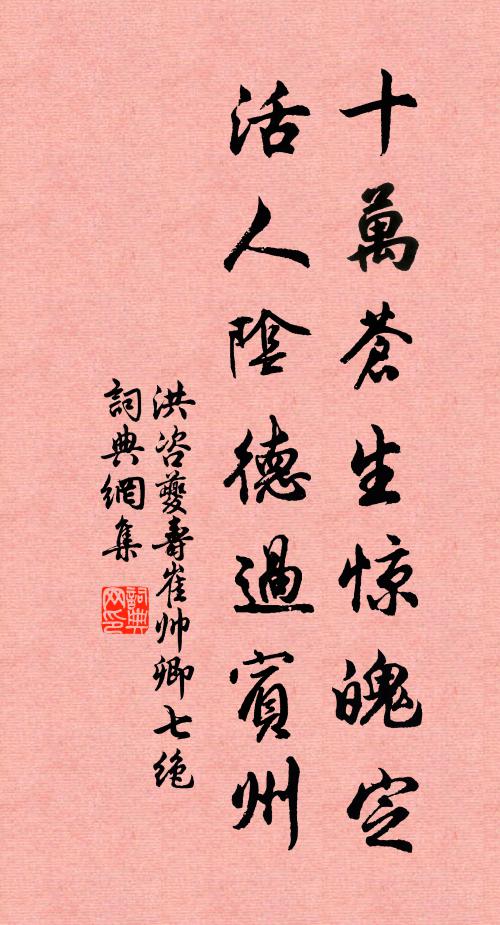 十萬蒼生惊魄定
活人陰德過賓州
洪咨夔壽崔帅卿七绝
詞典網集
詞典网印